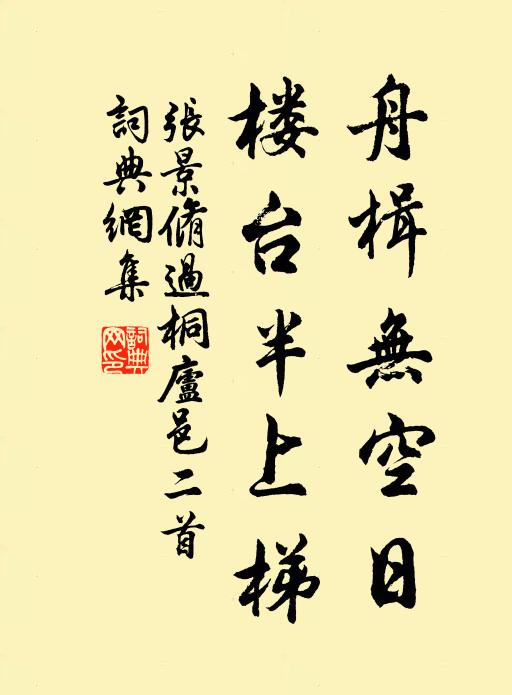 舟楫無空日
楼台半上梯
張景脩過桐廬邑二首
詞典網集
詞典
网印